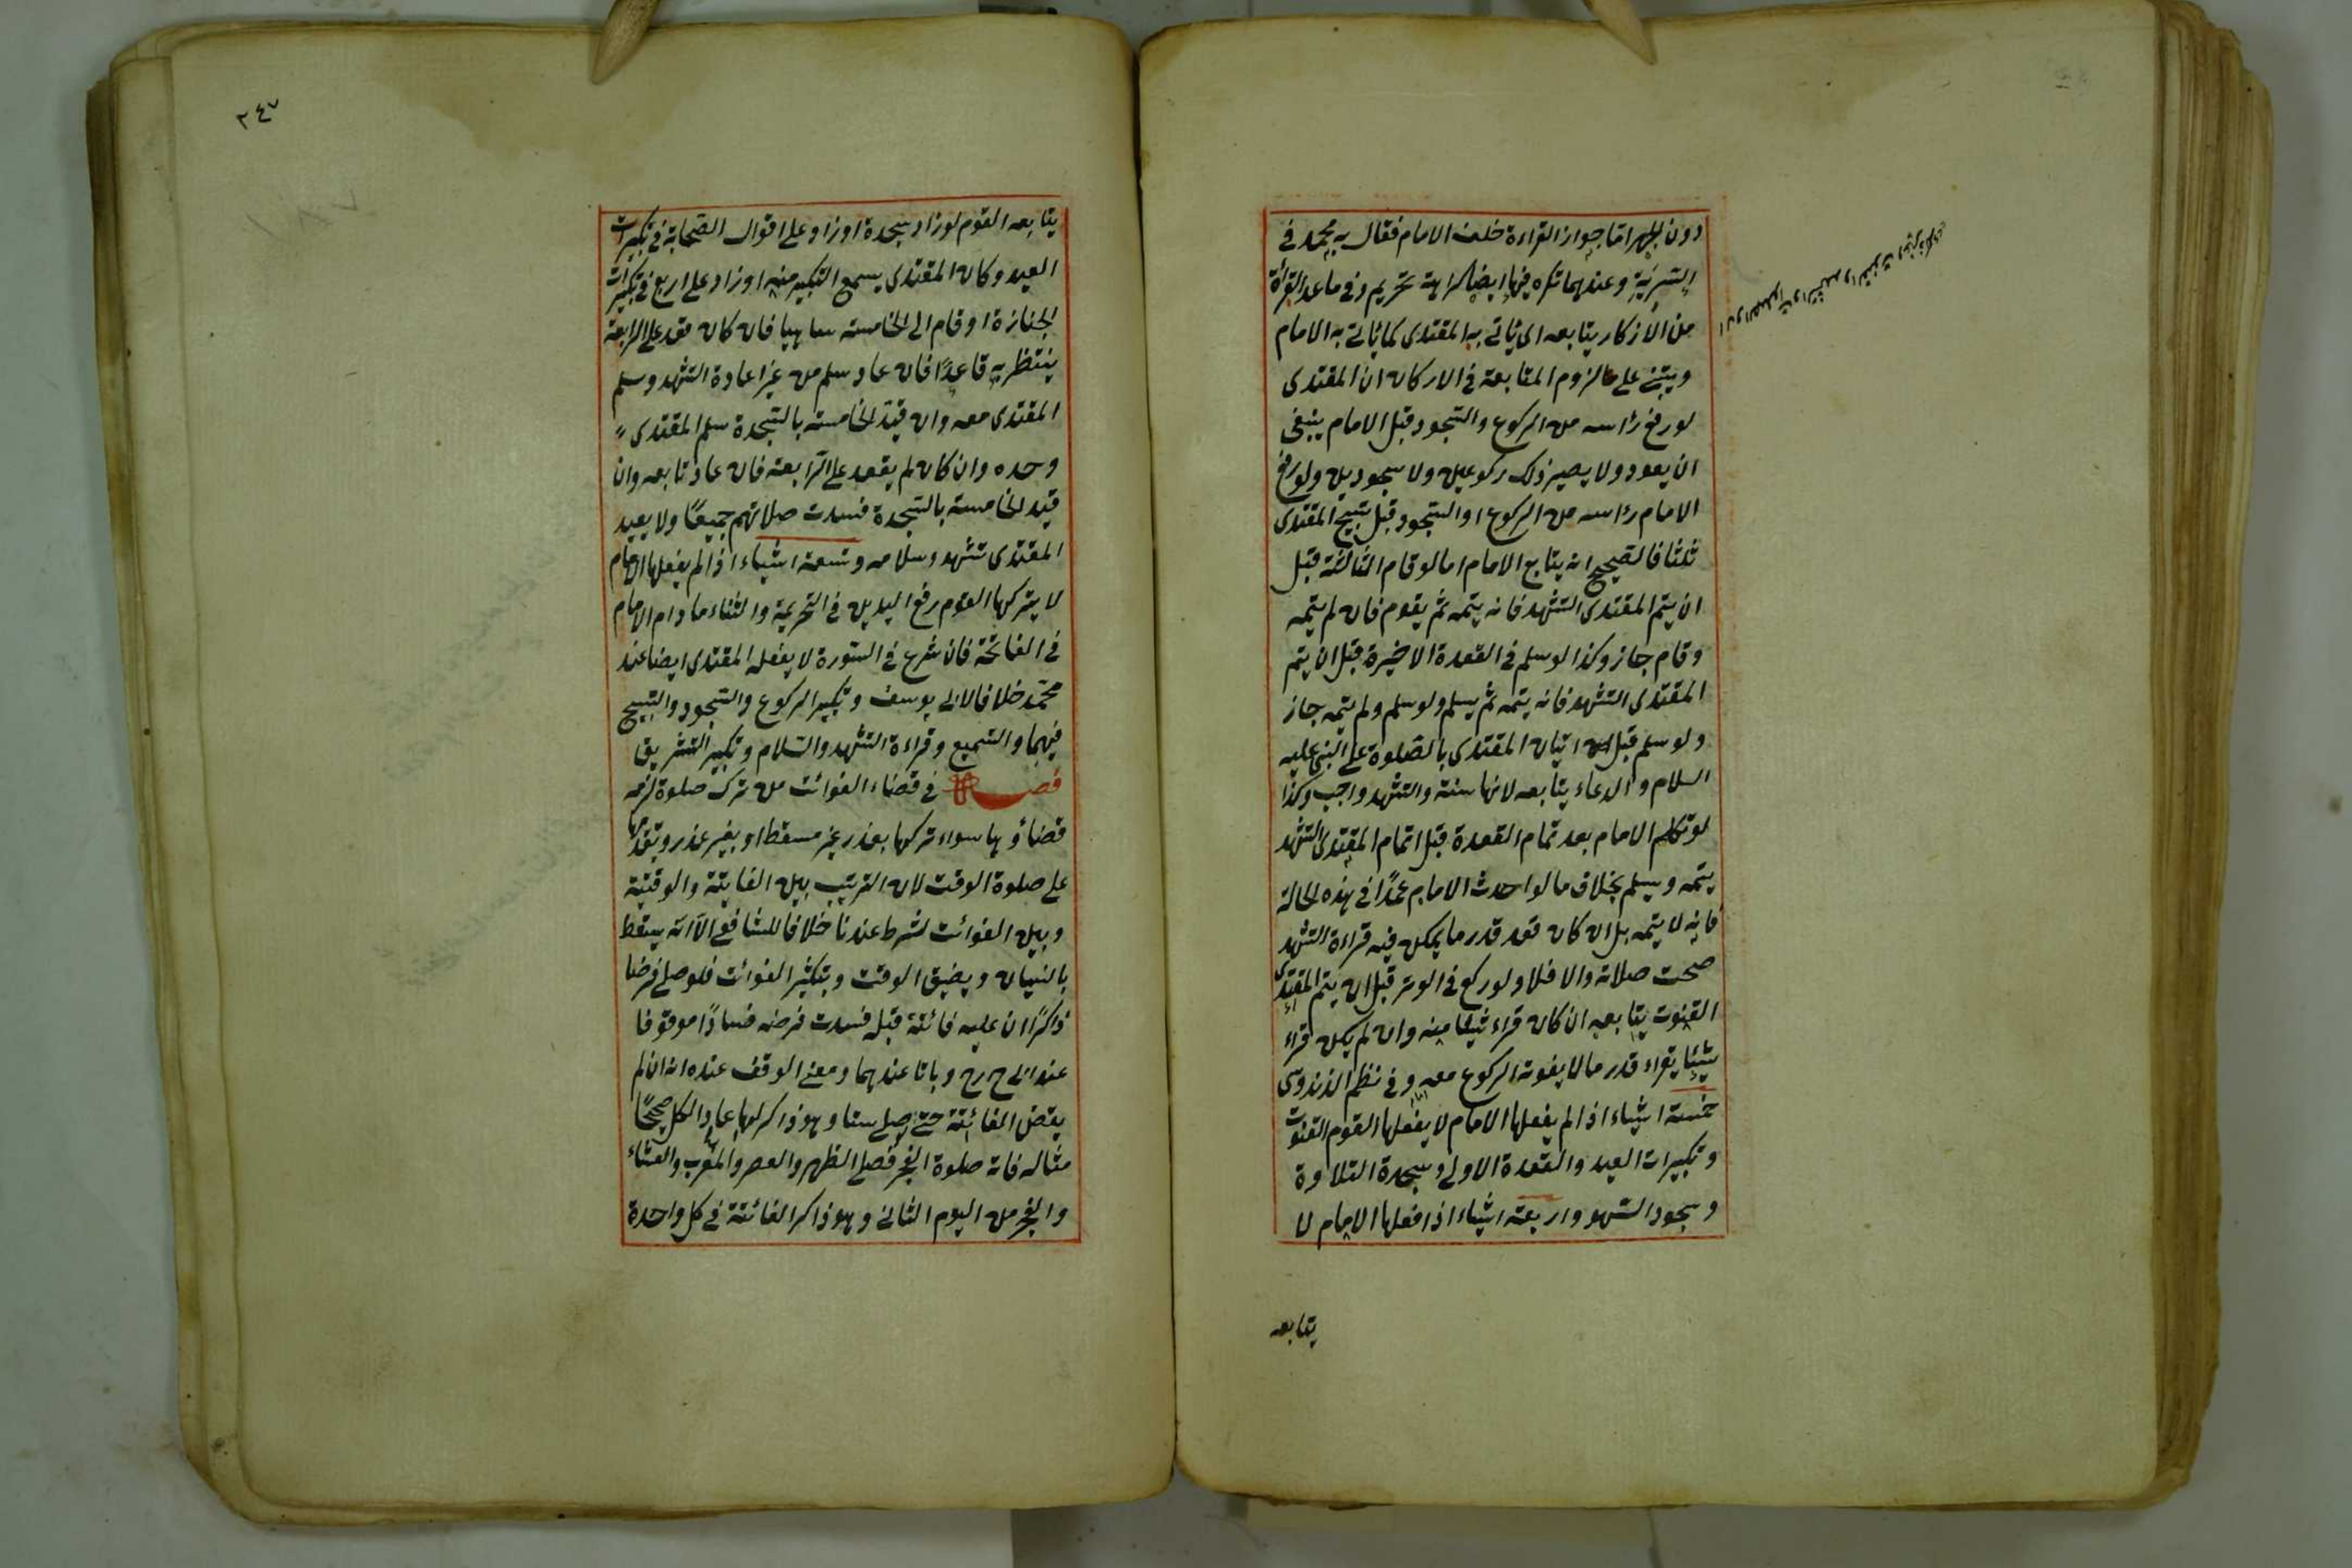 دون الجهر امّا جواز القراءة خلف الامام فقال به محمد في
السّرّية وعندهما تكره فيها ايضا كراهة تحريم وفي ما عدا القرأة
من الأذكار يتابعه اى يأتى به المقتدى كما يأتى به الامام
ويبتنى على لزوم المتابعة في الاركان ان المقتدى
لو رفع رأسه من الركوع والسّجود قبل الامام ينبغى
ان يعود ولا يصير ذلك ركوعين ولا سجودين ولو رفع
الامام رأسه من الركوع او السّجود قبل تسبيح المقتدى
ثلثا فالصّحيح انه يتابع الامام اما لو قام الثالثة قبل
ان يتمّ المقتدى التشهد فانه يتمه ثم يقوم فان لم يتمه
وقام جاز وكذا لو سلم في القعدة الاخيرة قبل ان يتم
المقتدى التشهد فانه يتمه ثم يسلم ولو سلم ولم يتمه جاز
ولو سلم قبل اتيان المقتدى بالصّلوة على النبى عليه
السلام والدعاء يتابعه لانها سنة والتشهد واجب وكذا
لو تكلم الامام بعد تمام القعدة قبل اتمام المقتدى التشهد
يتمه ويسلم بخلاف ما لو احدث الامام عمدًا في هذه الحالة
فانه لا يتمه بل ان كان قعد قدر ما يمكن فيه قراءة التشهد
صحت صلاته والا فلا ولو ركع في الوتر قبل ان يتم المقتدى
القنوت يتابعه ان كان قراء شيئا منه وان لم يكن قراء
شيئا يقراء قدر ما لا يفوته الركوع معه وفي نظم الزندوسى
خمسة اشياء اذا لم يفعلها الامام لا يفعلها القوم القنوت
وتكبيرات العيد والقعدة الاولى وسجدة التلاوة
وسجود السّهو واربعة اشياء اذا فعلها الامام لا
يتابعه
٢٤٧
يتابعه القوم لو زاد سجدة او زاد على اقوال الصّحابة في تكبيرات
العيد وكان المقتدى يسمع التكبير منه او زاد على اربع في تكبيرات
الجنازة او قام الى الخامسة ساهيا فان كان قعد على الرابعة
ينتظر به قاعدًا فان عاد سلم من غير اعادة التشهد وسلم
المقتدى معه وان قيّد الخامسة بالسّجدة سلم المقتدى
وحده وان كان لم يقعد على الرّابعة فان عاد تابعه وان
قيّد الخامسة بالسّجدة فسدت صلاتهم جميعًا ولا يعيد
المقتدى تشهد وسلامه وتسعة اشياء اذا لم يفعلها الامام
لا يتركها القوم رفع اليدين في التحريمة والثناء ما دام الامام
في الفاتحة فان شرع في السّورة لا يفعله المقتدى ايضا عند
محمّد خلافا لابى يوسف وتكبير الركوع والسّجود والتسبيح
فيهما والتسميع وقراءة التشهد والسّلام وتكبير التشريق
فصل في قضاء الفوائت من ترك صلوة لزمه
قضاؤها سواء تركها بعذر غير مسقط او بغير عذر ويقدّمها
على صلوة الوقت لان الترتيب بين الفايتة والوقتية
وبين الفوائت شرط عندنا خلافا للشافعى الّا انّه يسقط
بالنسيان وبضيق الوقت وبتكثير الفوائت فلو صلى فرضا
ذاكرًا ان عليه فائتة قبله فسدت فرضه فسادًا موقوفا
عند ابى ح رح وباتا عندهما ومعنى الوقف عنده انه ان لم
يقض الفائتة حتى صلى ستا وهو ذاكر لها عاد الكل صحيحًا
مثاله فاته صلوة الفجر فصلى الظهر والعصر والمغرب والعشاء
والفجر من اليوم الثانى وهو ذاكر الفائتة في كل واحدة